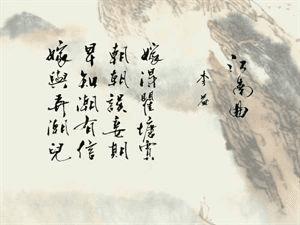 江南曲
李益
嫁得瞿塘賈
朝朝誤妾期
早知潮有信
嫁與弄潮兒